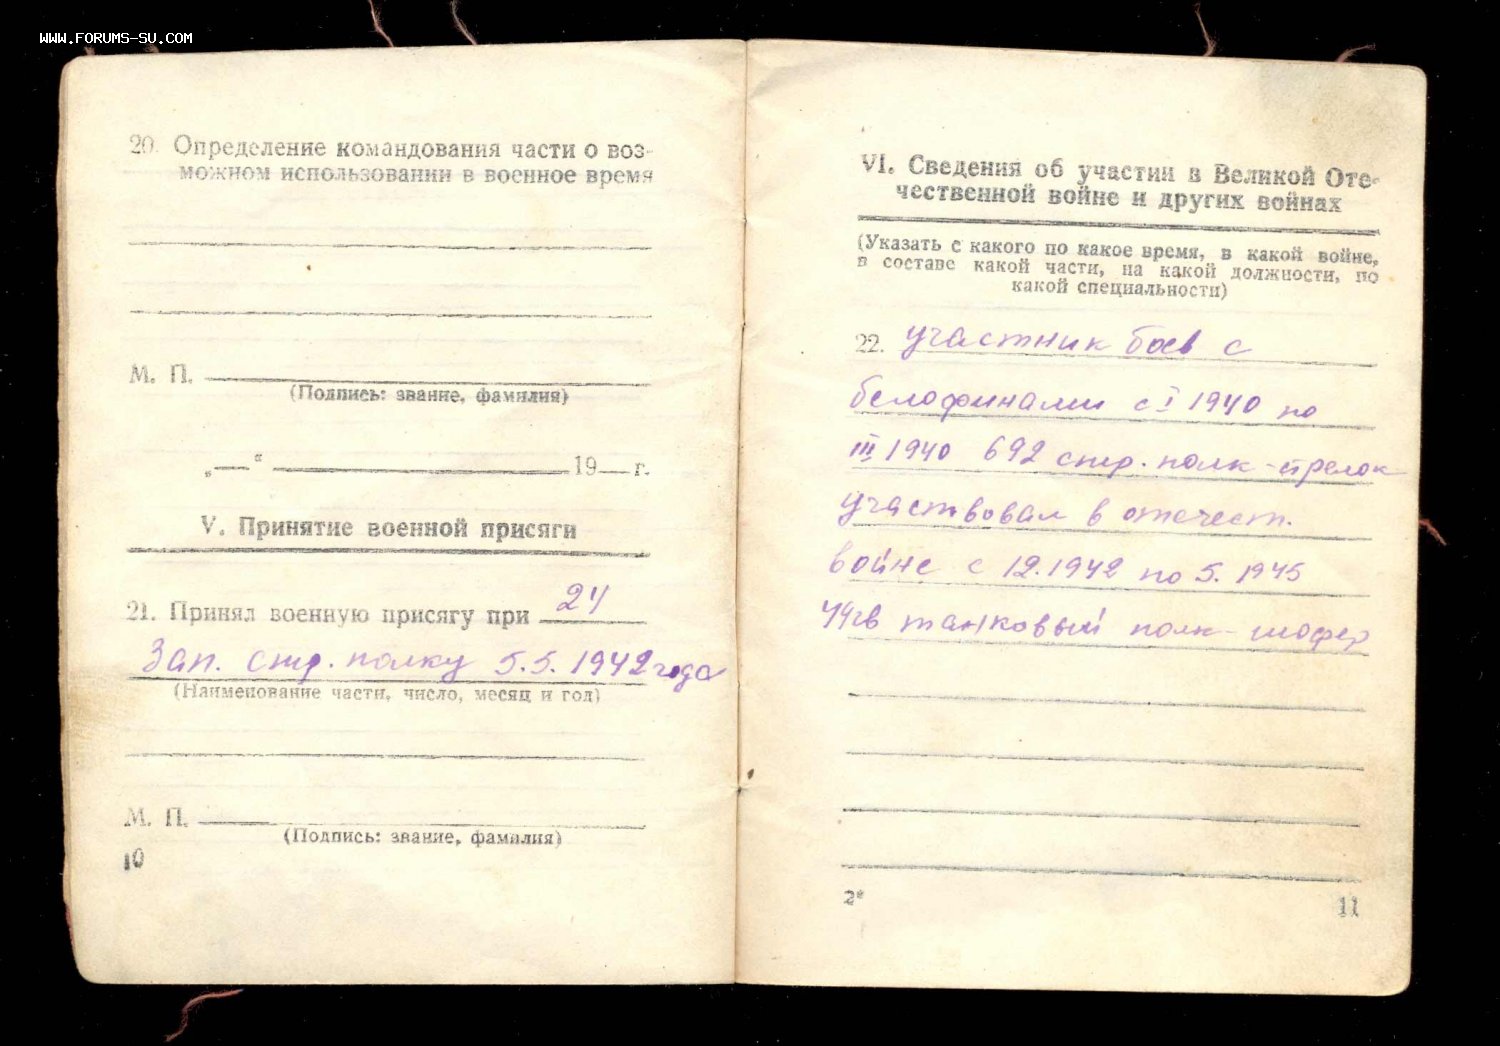 WWW.FORUMS-SU.COM
20. Определение командования части о воз-
можном использовании в военное время
М. П.
(Подпись: звание, фамилия)
„—“ 19— г.
V. Принятие военной присяги
21. Принял военную присягу при 24
Зап. стр. полку 5.5. 1942 года
(Наименование части, число, месяц и год)
М. П.
(Подпись: звание, фамилия)
10
VI. Сведения об участии в Великой Оте-
чественной войне и других войнах
(Указать с какого по какое время, в какой войне,
в составе какой части, на какой должности, по
какой специальности)
22. участник боев с
белофинами с I 1940 по
III 1940 692 стр. полк - стрелок
участвовал в отечест.
войне с 12.1942 по 5. 1945
44гв танковый полк - шофер
2*
11